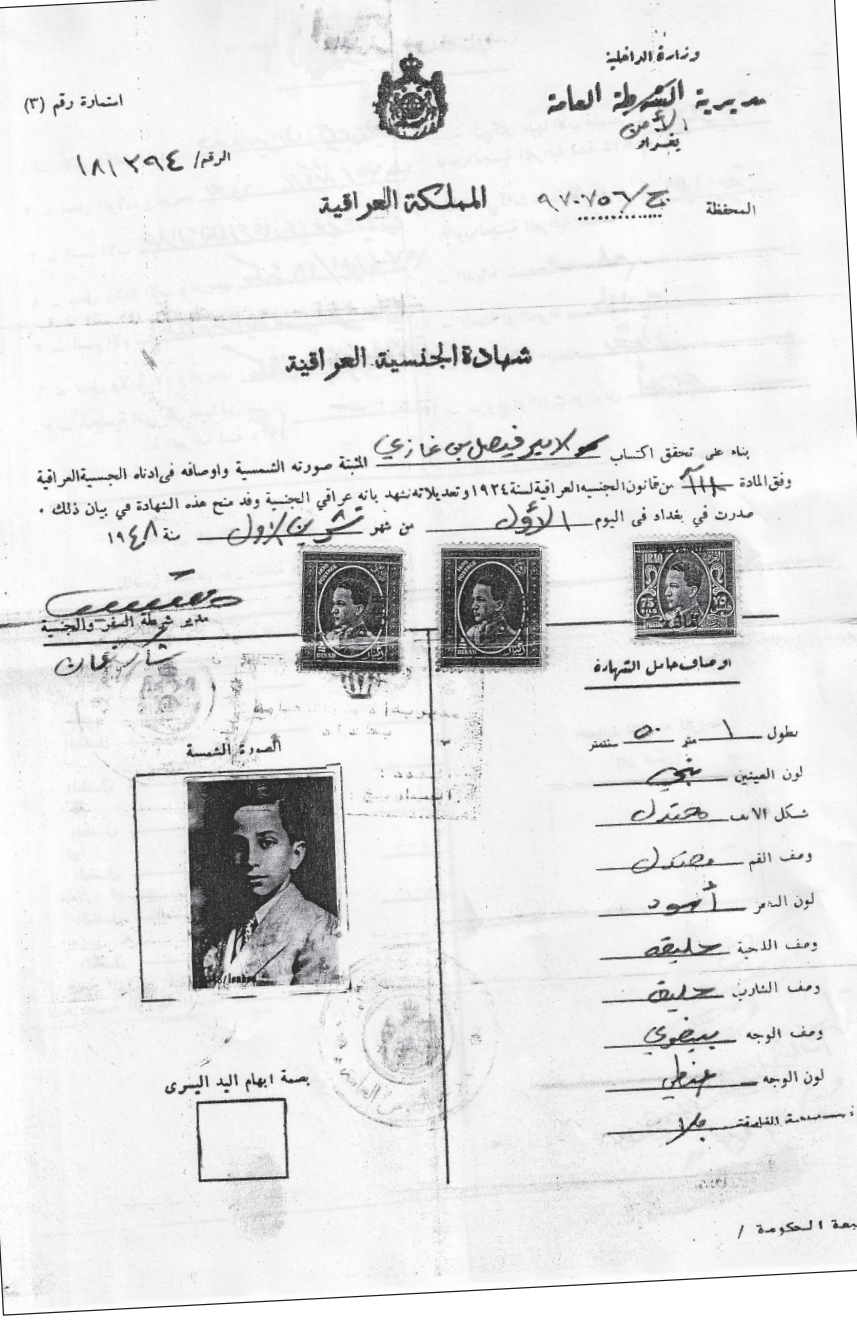 وزارة الداخلية
مديرية الشرطة العامة
الأمن
بغداد
استمارة رقم (٣)
الرقم/ ١٨١٣٩٤
المحفظة ج/٩٧٠٧٥٦
المملكة العراقية
شهادة الجنسية العراقية
بناء على تحقق اكتساب الامير فيصل بن غازي المثبتة صورته الشمسية واوصافه في ادناه الجنسية العراقية
وفق المادة من قانون الجنسيه العراقية لسنة ١٩٢٤ وتعديلاته نشهد بانه عراقي الجنسية وقد منح هذه الشهادة في بيان ذلك ٠
صدرت في بغداد في اليوم الأول من شهر تشرين الاول سنة ١٩٤٨
مدير شرطة السفر والجنسية
شاكر
IRAQ
75
٧٥
DINAR
اوصاف حامل الشهادة
بطول ١ متر ٥٠ سنتمتر
لون العينين بني
شكل الانف معتدل
وصف الفم معتدل
لون الشعر أسود
وصف اللحية حليقه
وصف الشارب حليق
وصف الوجه بيضوي
لون الوجه حنطي
الصورة الشمسة
بصمة ابهام اليد اليسرى
الحكومة /